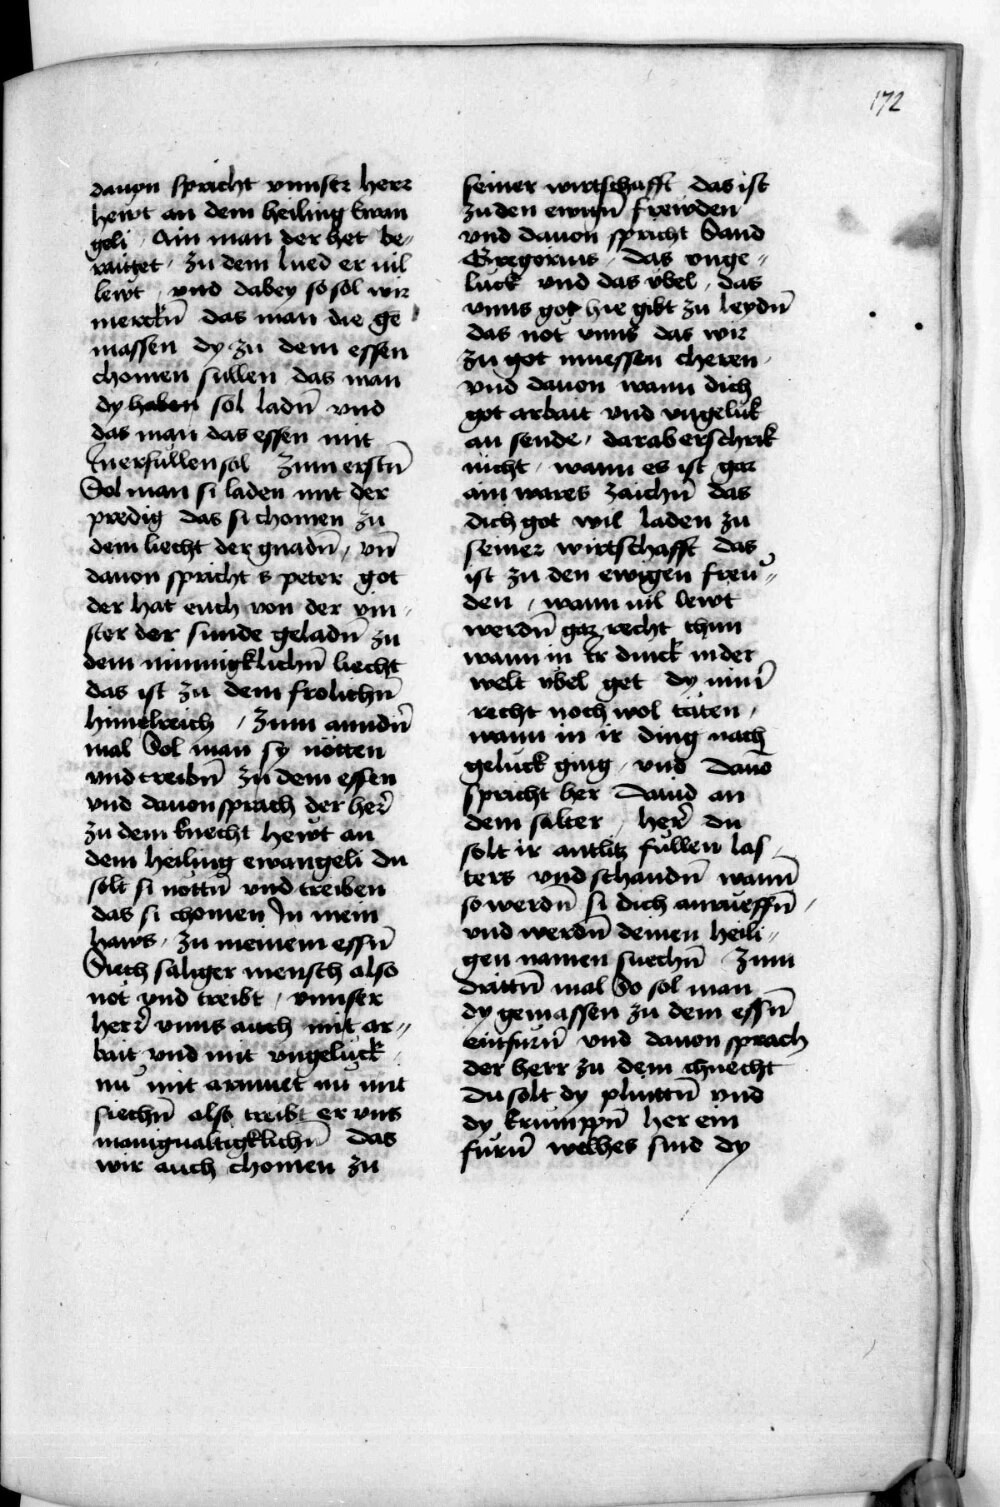 172
dauon spricht vnnser herr
hewt an dem heiling Ewan
geli Ain man der het be〃
raittet zu dem lued er uil
lewt vnd dabey so sol wir
merckn̄ das man die ge
massen dy zu dem essen
chomen sullen das man
dy haben sol ladn̄ vnd
das man das essen mit
In erfullen sol Zum erstn̄
Sol man si laden mit der
predig das si chomen zu
dem liecht der gnadn̄ / vn̄
dauon spricht s peter got
der hat euch von der vin
ster der sunde geladn̄ zu
dem minnigklichn̄ liecht
das ist zu dem frolichn̄
himelreich / Zum anndn̄
mal Sol man sy nötten
vnd treibn̄ zu dem essen
vnd dauon sprach der her̄
zu dem knecht hewt an
dem heiling ewangeli du
solt si nöttn̄ vnd treiben
das si chomen In mein
haws / zu meinem essn̄
Siech saliger mensch also
not vnd treibt / vnnser
her̄ vnns auch mit ar〃
bait vnd mit vngeluck
nu mit armuet nu mit
siechn̄ also treibt er vns
manigualtigklichn̄ das
wir auch chomen zu
seiner wirtschafft das ist
zu den ewign̄ frewden
vnd dauon spricht Sand
Gregorius / das vnge〃
luck vnd das vbel / das
vnns got hie gibt zu leydn̄
das not vnns das wir
zu got muessen cheren
vnd dauon wann dich
got arbait vnd vngeluk
an sende / darab erschrik
nicht / wann es ist gar
ain wares zaichn̄ das
dich got wil laden zu
seiner wirtschafft das
ist zu den ewigen freu〃
den / wann uil lewt
werdn̄ gar recht thun
wann in Ir dinck in der
welt vbel get dy nim̄
recht noch wol täten /
wann in ir ding nach
geluck ging / vnd dauō
spricht her Dauid an
dem salter / her̄ du
solt ir antlitz fullen las
ters vnd schandn̄ wann̄
so werdn̄ si dich anrueffn̄ /
vnd werdn̄ deinen heili〃
gen namen suechn̄ Zum
drittn̄ mal So sol man
dy gemassen zu dem essn̄
einfurn̄ vnd dauon sprach
der herr zu dem chnecht
du solt dy plinttn̄ vnd
dy krumppn̄ her ein
furn̄ welhes sind dy